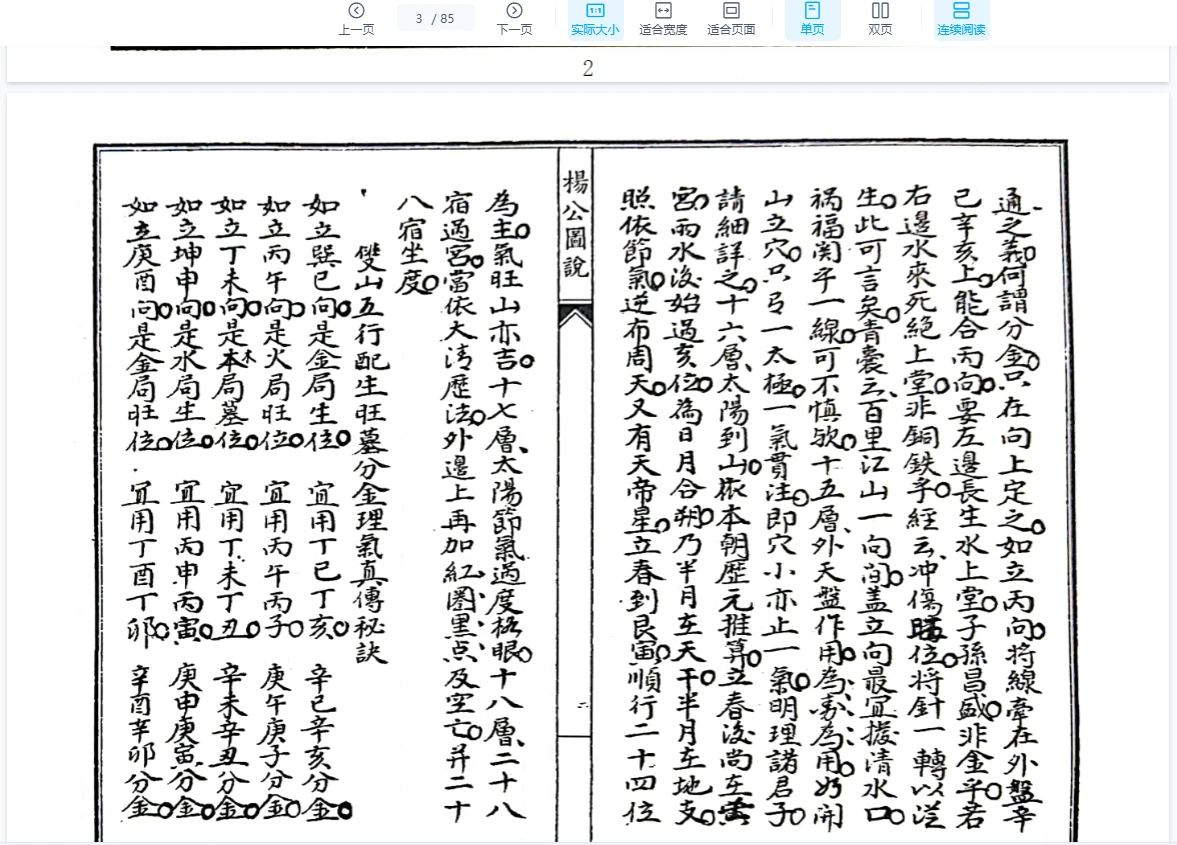 上一页 3 / 85 下一页 实际大小 适合宽度 适合页面 单页 双页 连续阅读
2
通之義何謂分金只在向上定之如立丙向将線牽在外盤辛
己辛亥上能合丙向要左邊長生水上堂子孫昌盛非金乎若
右邊水來死絕上堂非銅鉄乎經云冲傷位将針一轉以從
生此可言矣青囊云百里江山一向间盖立向最宜撥清水口
禍福関乎一線可不慎欤十五層外天盤作用為為用妙開
山立穴只号一太極一氣貫注即穴小亦止一氣明理諸君子
請細詳之十六層太陽到山依本朝歷元推算立春後尚在
宮雨水後始過亥位為日月合朔乃半月在天干半月在地支
照依節氣逆布周天又有天帝星立春到艮寅順行二十四位
楊公圖說
二
為主氣旺山亦吉十七層太陽節氣過度格眼十八層二十八
宿過宮當依大清歷法外邊上再加紅圈黑点及空亡并二十
八宿坐度
雙山五行配生旺墓分金理氣真傳秘訣
如立巽巳向是金局生位 宜用丁巳丁亥 辛巳辛亥分金
如立丙午向是火局旺位 宜用丙午丙子 庚午庚子分金
如立丁未向是本木局墓位 宜用丁未丁丑 辛未辛丑分金
如立坤申向是水局生位 宜用丙申丙寅 庚申庚寅分金
如立庚酉向是金局旺位 宜用丁酉丁卯 辛酉辛卯分金